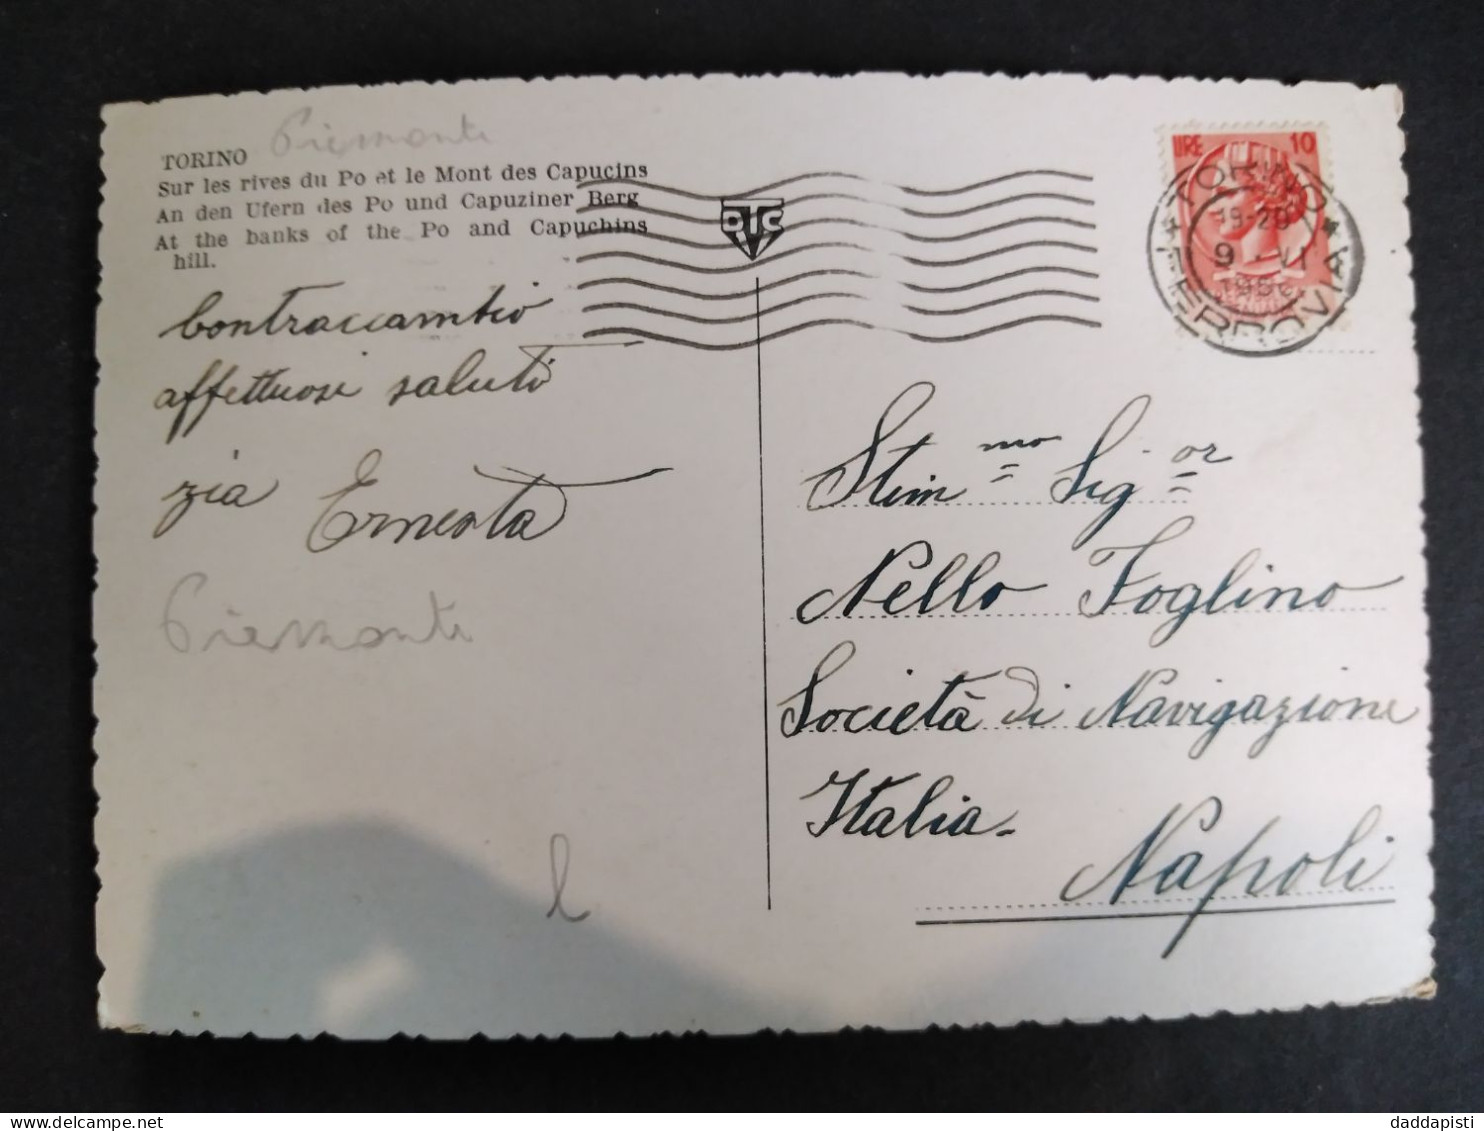 TORINO Piemonte
Sur les rives du Po et le Mont des Capucins
An den Ufern des Po und Capuziner Berg
At the banks of the Po and Capuchins
hill.
Contraccambio
affettuosi saluti
zia Ernesta
Piemonte
l
DTC
LIRE 10
TORINO
18-20
9 VI
FERROVIA
Stim mo Sig or
Nello Foglino
Società di Navigazione
Italia-
Napoli
delcampe.net
daddapisti